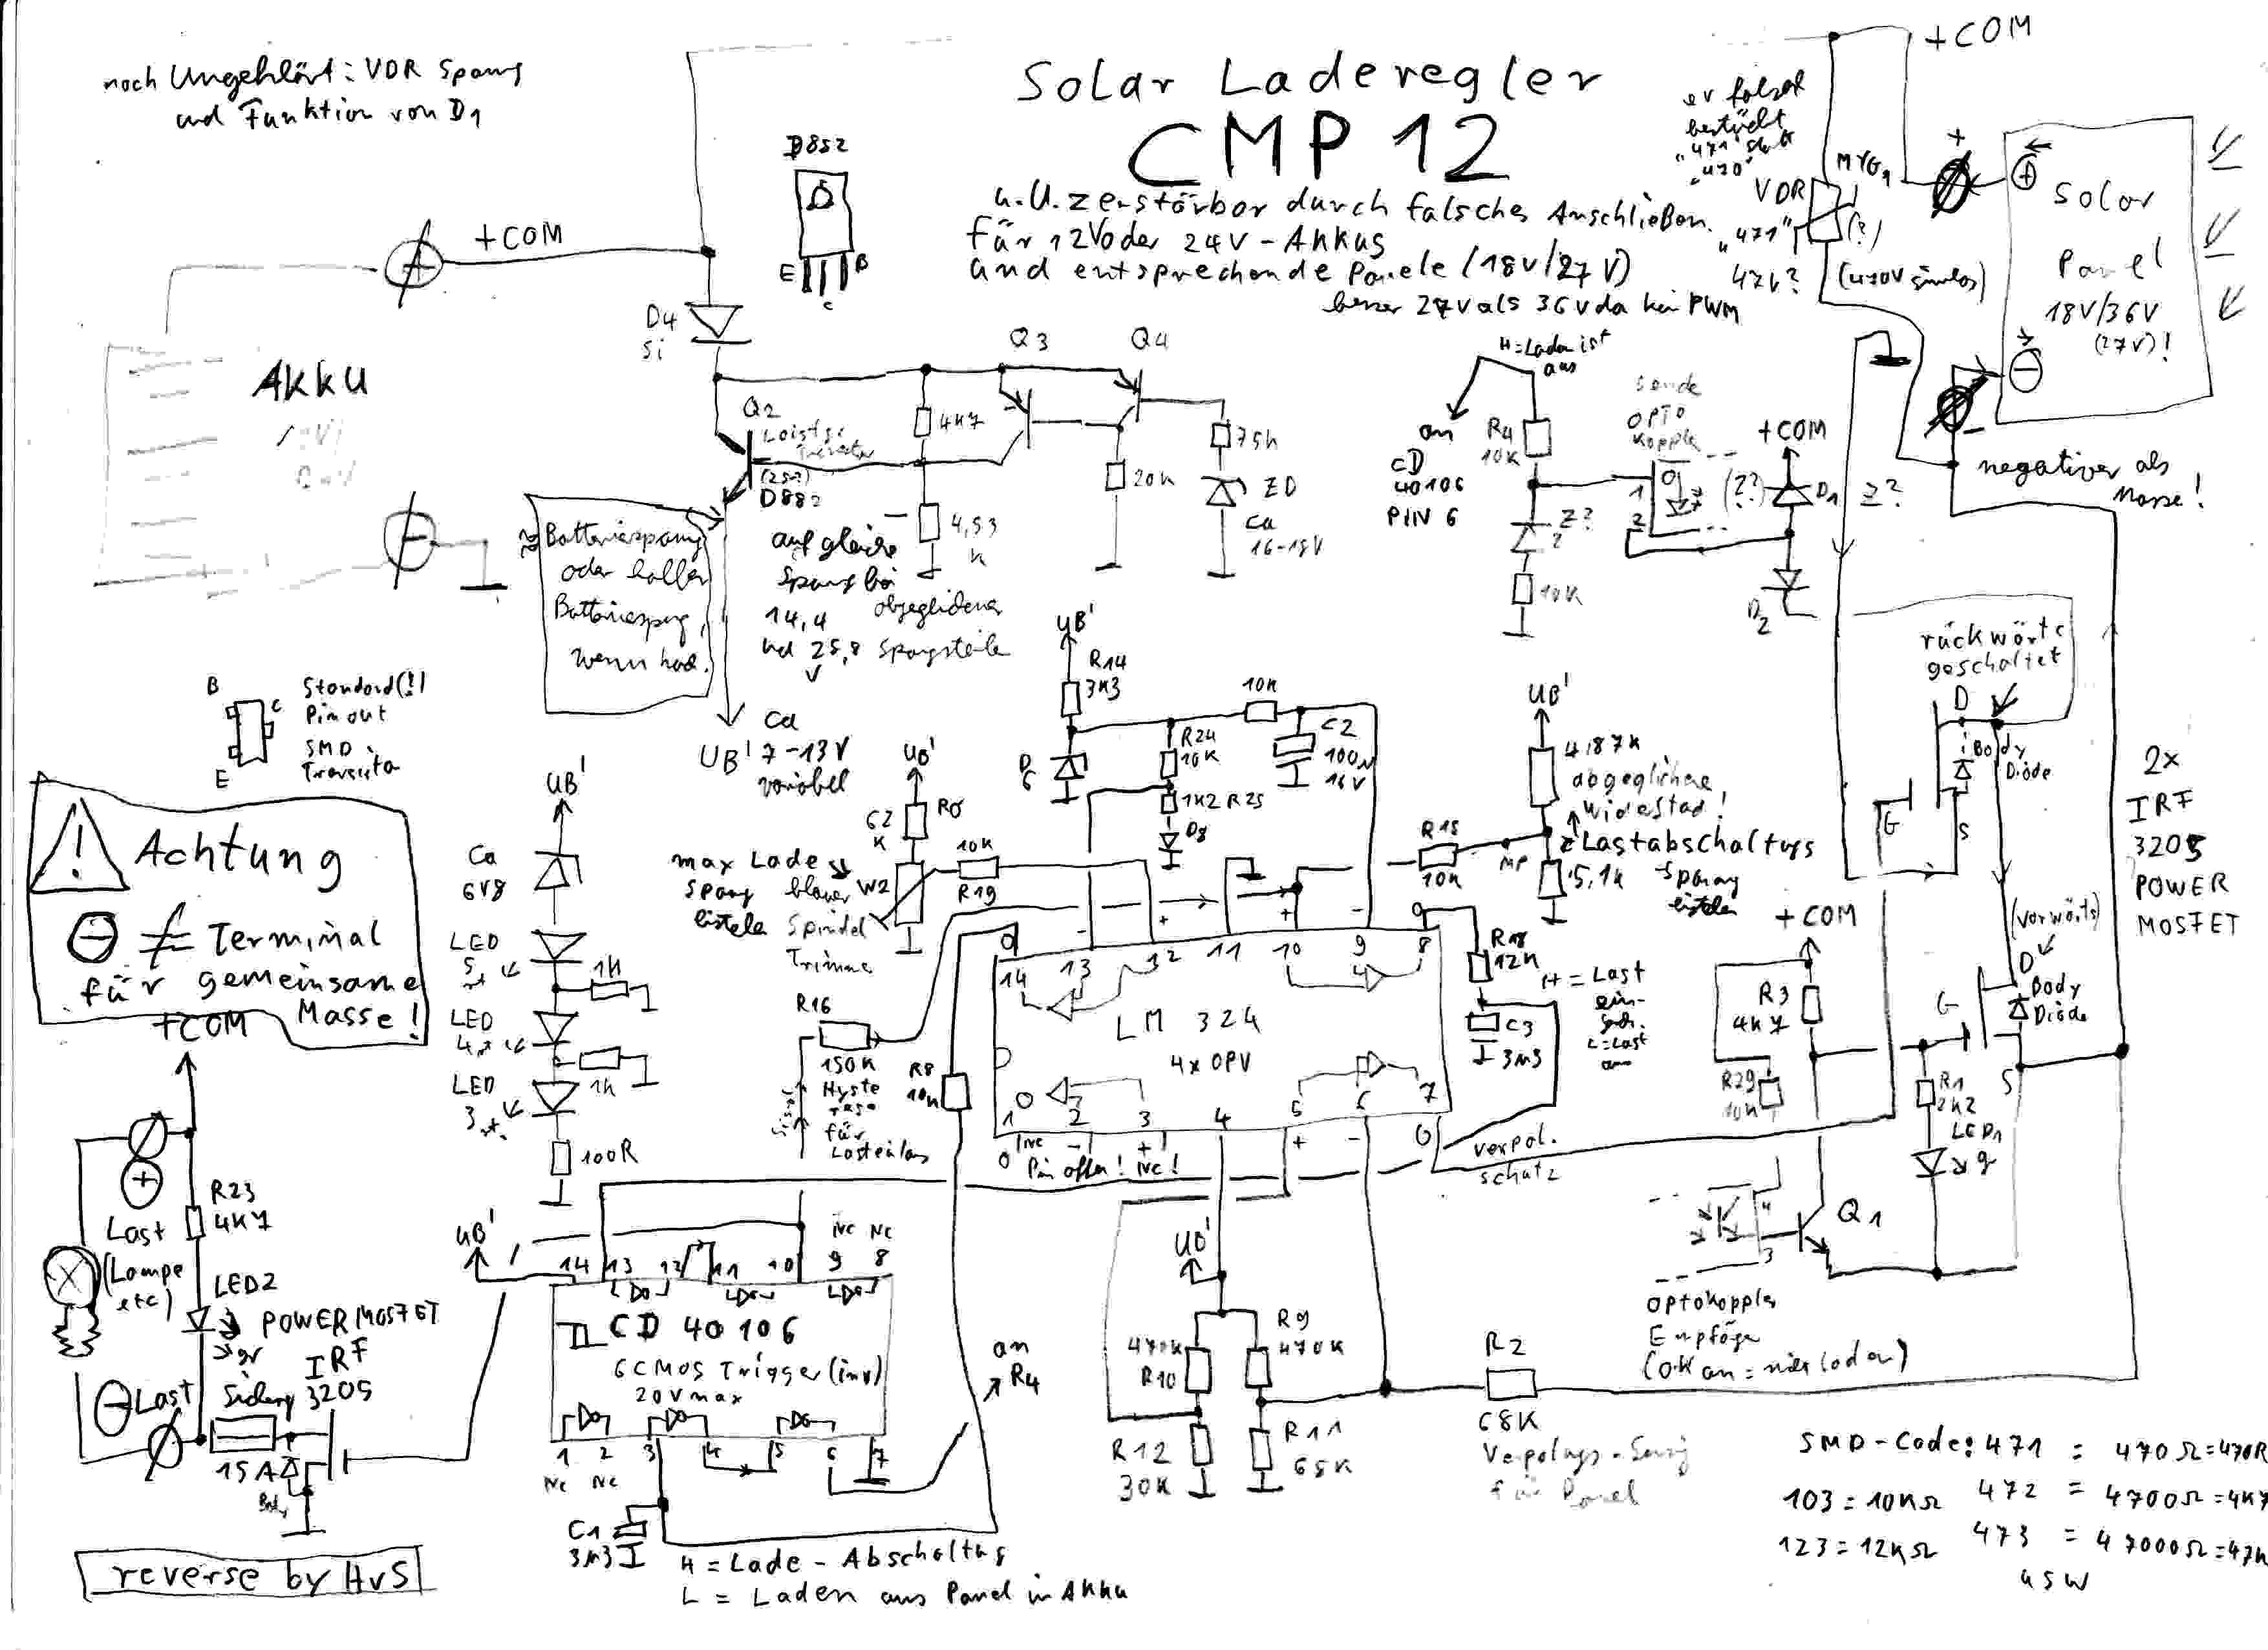 noch Ungeklärt: VDR Spanng
und Funktion von D1
Solar Laderegler
CMP 12
u.U. zerstörbar durch falsches Anschließen.
für 12V oder 24V-Akkus
und entsprechende Panele (18V/27V)
besser 27V als 36V da kein PWM
+COM
bestückt
"471" statt
"470"
VDR
"471"
(?)
47V?
(470V sinnlos)
+
Solar
Panel
18V/36V
(27V)!
-
negativer als
Masse!
D852
E
C
B
+COM
Akku
D4
Si
Q2
D882
4K7
4,53
K
Q3
Q4
20K
75K
ZD
Ca
16-18V
≈ Batteriespanng
oder halber
Batteriespng,
wenn
auf gleiche
Spanng bei
abgeglichener
14,4
und 25,8
V
Ca
UB' 7-13V
variabel
H = Laden ist
aus
an
CD
40106
PIN 6
R4
10K
Z?
10K
OPTO
Koppler
1
2
(Z?)
+COM
D1
Z?
D2
rückwärts
geschaltet
D
Body
Diode
G
S
2x
IRF
3205
POWER
MOSFET
(vorwärts)
D
Body
Diode
G
S
B
C
E
Standard(!)
Pinout
SMD
Transistor
Achtung
⊖ ≠ Terminal
für gemeinsame
Masse!
+COM
UB'
Ca
6V8
LED
5
1K
LED
4
1K
LED
3
100R
UB'
R14
3K3
D6
R24
10K
1K2 R25
D8
10K
C2
100µ
16V
UB'
62
K
W2
10K
R19
max Lade
Spanng
blauer
Spindel
Trimmer
UB'
4,87K
abgeglichener
Widerstand!
MP
Lastabschaltngs
Spanng
5,1K
R15
10K
R16
150K
Hyste
rese
für
R8
10K
14
13
12
11
10
9
8
LM 324
4x OPV
1
2
3
4
5
6
7
Pin offen!
R18
12K
C3
3µ3
H = Last
ein-
L = Last
verpol.
schutz
+COM
R3
4K7
R29
10K
R1
2K2
LED1
Q1
4
3
Optokoppler
Empfänger
(OK an = nicht laden)
Last
(Lampe
etc)
R23
4K7
LED2
gr
POWER MOSFET
IRF
3205
Last
15A
UB'
14
13
12
11
10
9
8
CD 40106
6 CMOS Trigger (inv)
20V max
1
2
3
4
5
6
7
NC
NC
C1
3µ3
an
R4
H = Lade-Abschaltng
L = Laden aus Panel in Akku
UB'
470K
R10
R9
470K
R12
30K
R11
68K
R2
68K
für Panel
SMD-Code: 471 = 470Ω = 470R
103 = 10KΩ 472 = 4700Ω = 4K7
123 = 12KΩ 473 = 47000Ω = 47K
usw
reverse by HvS